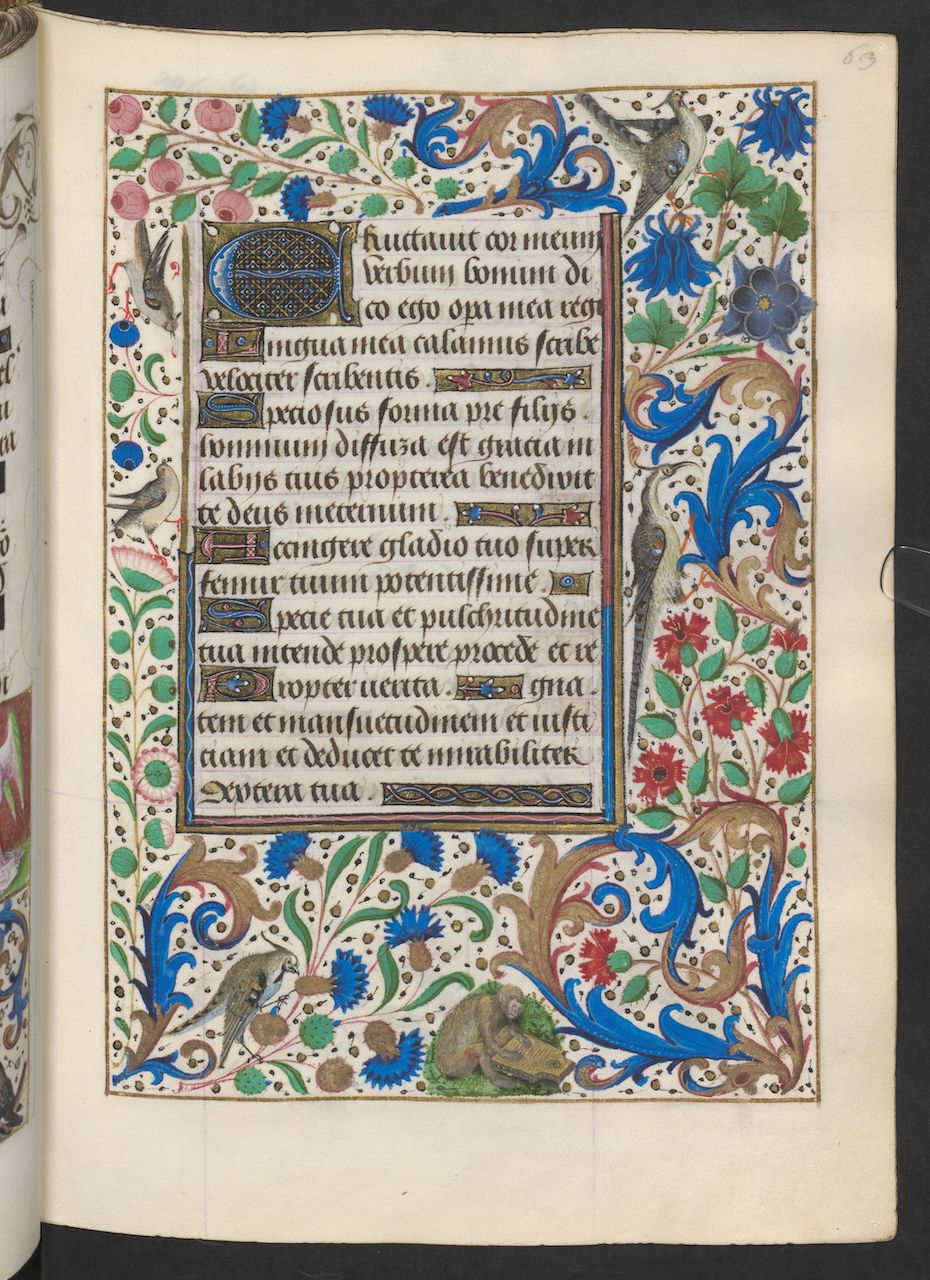 63
Eructauit cor meum
verbum bonum di
co ego opa mea regi
Lingua mea calamus scribe
velociter scribentis.
Speciosus forma pre filijs
hominum diffuza est gracia in
labijs tuis propterea benedixit
te deus ineternum.
Accingere gladio tuo super
femur tuum potentissime.
Specie tua et pulchritudine
tua intende prospere procede et re
Propter uerita. gna.
tem et mansuetudinem et iusti
ciam et deducet te mirabiliter
dextera tua.